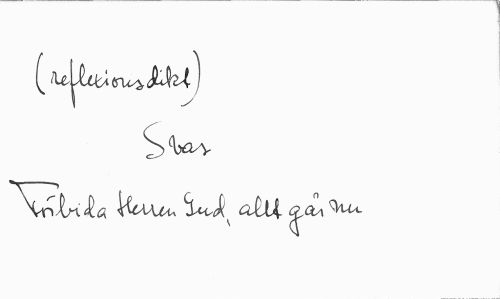 (reflexionsdikt)
Svar
Förbida Herren Gud, allt går nu